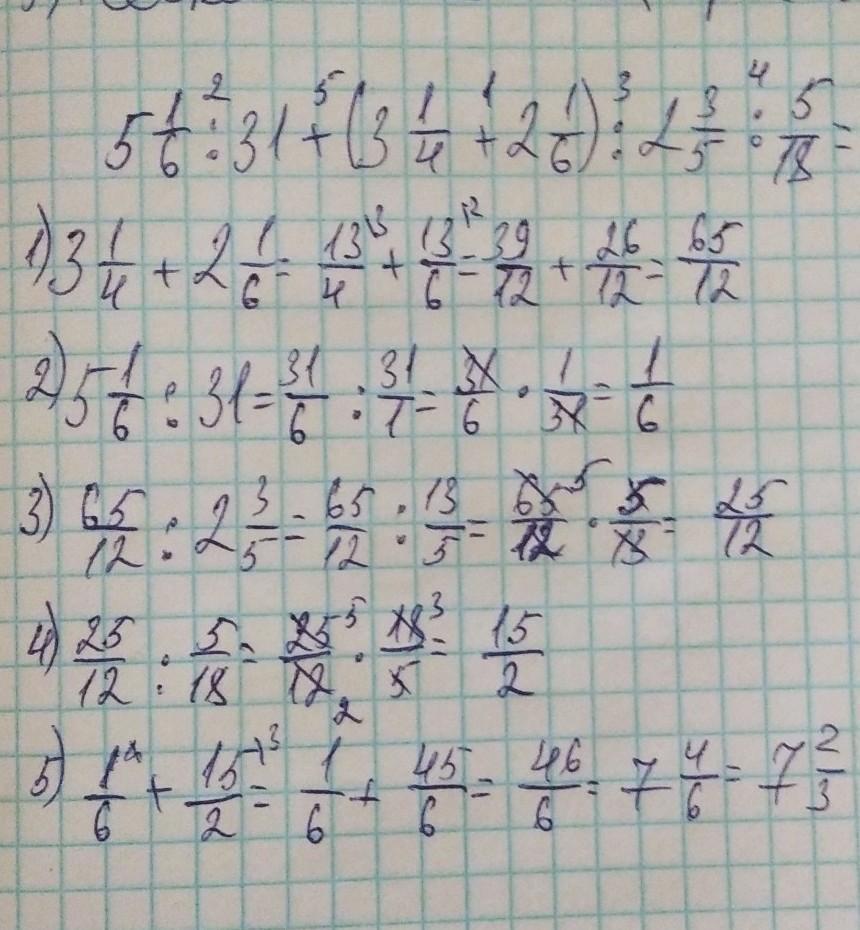 5 1/6 : 31 + (3 1/4 + 2 1/6) : 2 3/5 : 5/18 =
1) 3 1/4 + 2 1/6 = 13/4 + 13/6 = 39/12 + 26/12 = 65/12
2) 5 1/6 : 31 = 31/6 : 31/1 = 31/6 · 1/31 = 1/6
3) 65/12 : 2 3/5 = 65/12 : 13/5 = 65/12 · 5/13 = 25/12
4) 25/12 : 5/18 = 25/12 · 18/5 = 15/2
5) 1/6 + 15/2 = 1/6 + 45/6 = 46/6 = 7 4/6 = 7 2/3